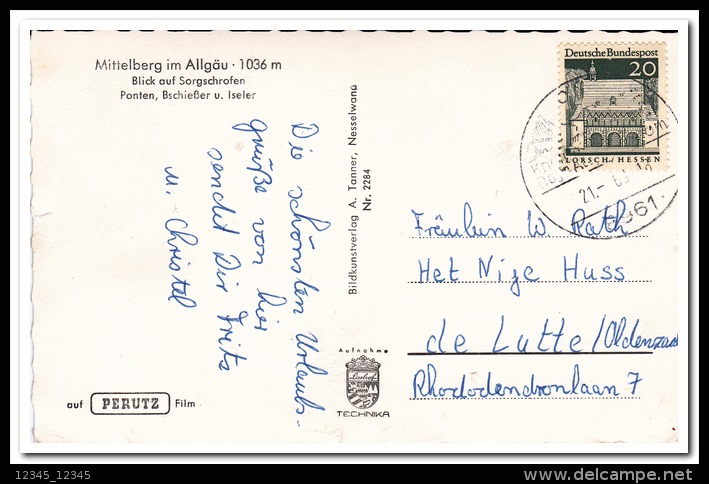 Mittelberg im Allgäu · 1036 m
Blick auf Sorgschrofen
Ponten, Bschießer u. Iseler
Die schönsten Urlaubs-
grüße von hier
sendet Dir Fritz
u. Christel
auf PERUTZ Film
Bildkunstverlag A. Tanner, Nesselwang
Nr. 2284
Aufnahme
TECHNIKA
Deutsche Bundespost
20
LORSCH / HESSEN
21.-
Fräulein W. Rath
Het Nije Huss
de Lutte/Oldenzaal
Rhododendronlaan 7
12345_12345
www.delcampe.net